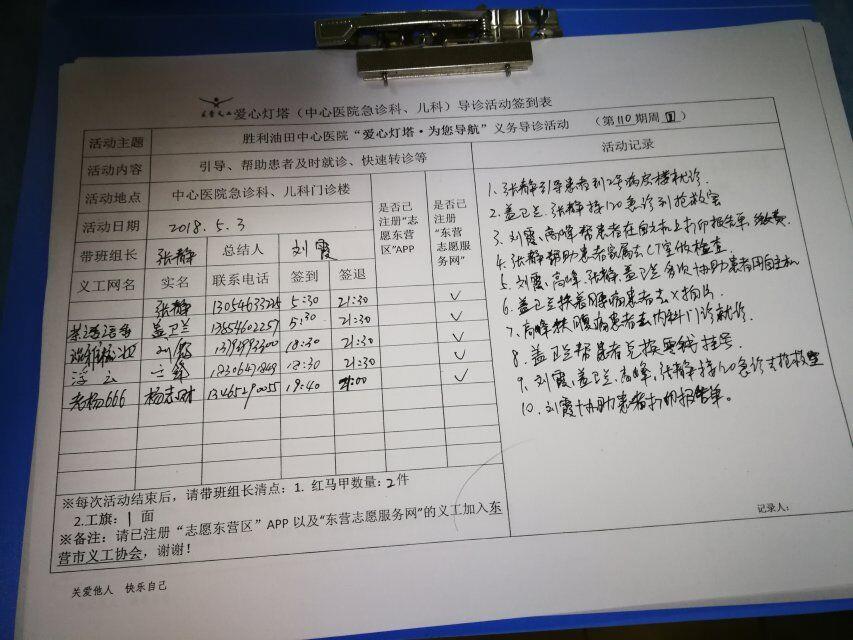 爱心灯塔（中心医院急诊科、儿科）导诊活动签到表
活动主题 胜利油田中心医院“爱心灯塔·为您导航”义务导诊活动 （第110期周四）
活动内容 引导、帮助患者及时就诊、快速转诊等
活动地点 中心医院急诊科、儿科门诊楼
活动日期 2018.5.3
带班组长 张静 总结人 刘霞
是否已注册“志愿东营区”APP
是否已注册“东营志愿服务网”
义工网名 实名 联系电话 签到 签退
张静 5:30 21:30 ✓
盖卫兰 13854602257 5:30 21:30 ✓
18:30 21:30 ✓
浮云 18306471849 18:30 21:30 ✓
老杨666 13465290055 19:40 21:00
※每次活动结束后，请带班组长清点：1. 红马甲数量：2件
2.工旗：1面
※备注：请已注册“志愿东营区”APP 以及“东营志愿服务网”的义工加入东
营市义工协会，谢谢！
活动记录
1、张静引导患者到2号病房楼就诊。
2、盖卫兰、张静接120急诊到抢救室
3、刘霞、高峰帮患者在自主机上打印报告单、缴费。
4、张静帮助患者家属去CT室做检查。
5、刘霞、高峰、张静、盖卫兰多次协助患者用自主机
6、盖卫兰扶着腰病患者去X拍片。
7、高峰扶腹病患者去内科门诊就诊。
8、盖卫兰帮患者兑换零钱挂号。
9、刘霞、盖卫兰、高峰、张静接120急诊去抢救室
10、刘霞协助患者打印报告单。
记录人：
关爱他人 快乐自己